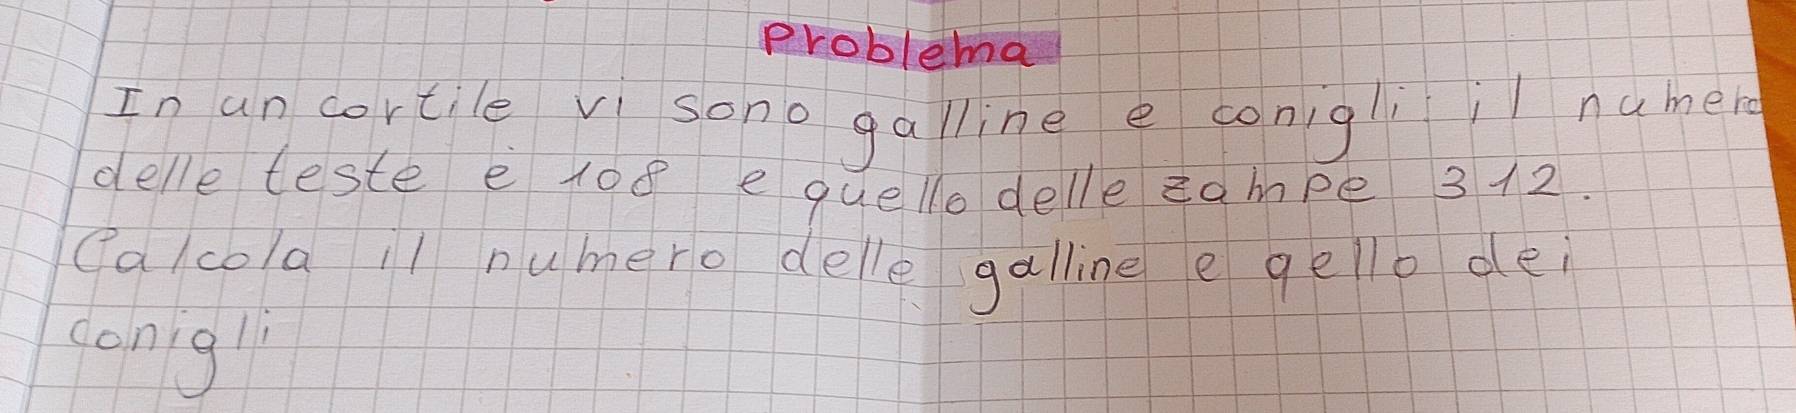 Problema
In un cortile vi sono galline e conigli: il numero
delle teste è 108 e quello delle zampe 312.
Calcola il numero delle galline e qello dei
conigli